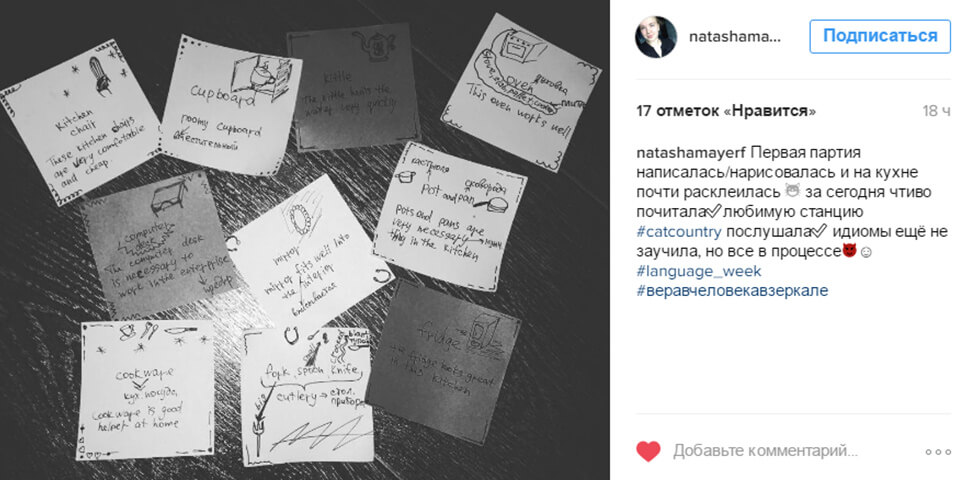 Kitchen
chair
These kitchen chairs
are very comfortable
and cheap.
cupboard
roomy cupboard
вместительный
kettle
The kettle boils the
water very quickly
oven
духовка
плита
This oven works well
computer
desk
The computer desk
is necessary to
work in the enterprise
mirror
mirror fits well into
the interior
кастрюля сковорода
Pot and pan
Pots and pans are
very necessary
thing in the kitchen
cookware
кух. посуда,
Cookware is good
helper at home
fork, spoon, knife
big
cutlery → стол.
приборы
fridge
the fridge looks great
in this kitchen
natashama...
Подписаться
17 отметок «Нравится» 18 ч
natashamayerf Первая партия
написалась/нарисовалась и на кухне
почти расклеилась за сегодня чтиво
почитала✔любимую станцию
#catcountry послушала✔ идиомы ещё не
заучила, но все в процессе😈☺
#language_week
#веравчеловекавзеркале
Добавьте комментарий...